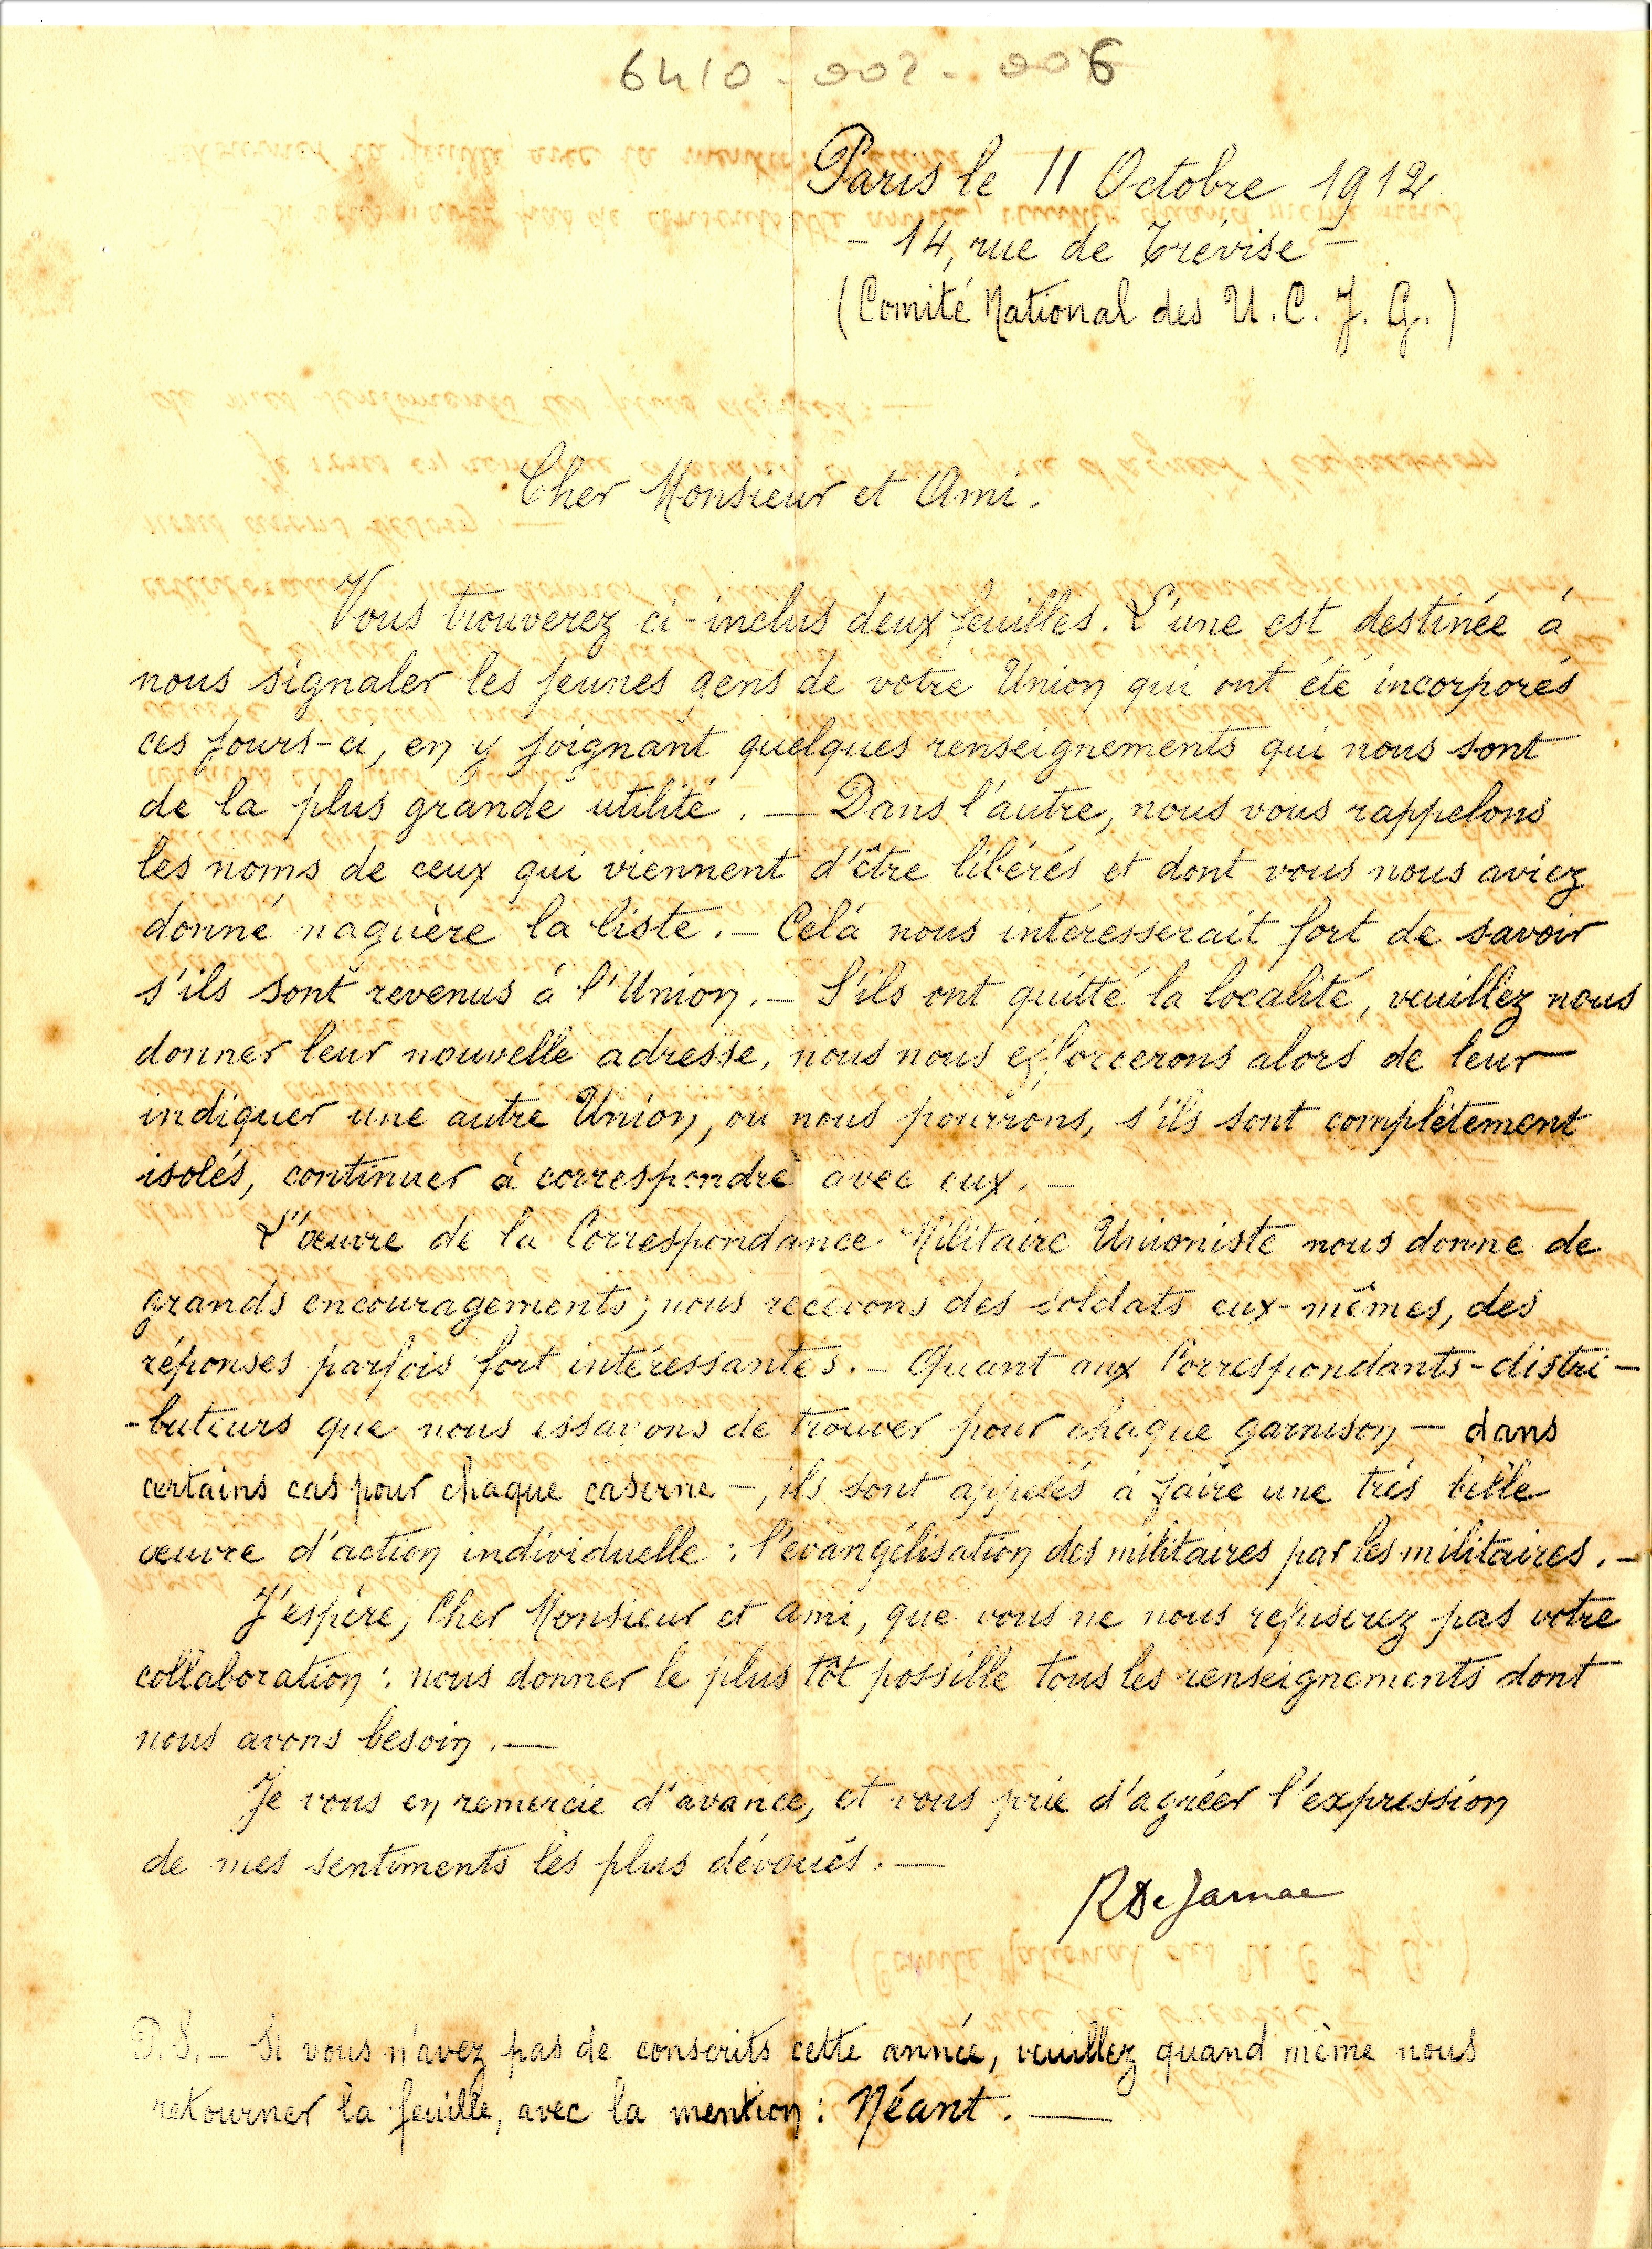 6410-002-006
Paris le 11 Octobre 1912
- 14, rue de Trévise -
(Comité National des U. C. J. G.)
Cher Monsieur et Ami.
Vous trouverez ci-inclus deux feuilles. L'une est destinée à
nous signaler les jeunes gens de votre Union qui ont été incorporés
ces jours-ci, en y joignant quelques renseignements qui nous sont
de la plus grande utilité. — Dans l'autre, nous vous rappelons
les noms de ceux qui viennent d'être libérés et dont vous nous aviez
donné naguère la liste. — Celà nous intéresserait fort de savoir
s'ils sont revenus à l'Union. — S'ils ont quitté la localité, veuillez nous
donner leur nouvelle adresse, nous nous efforcerons alors de leur
indiquer une autre Union, ou nous pourrons, s'ils sont complètement
isolés, continuer à correspondre avec eux. —
L'œuvre de la Correspondance Militaire Unioniste nous donne de
grands encouragements; nous recevons des soldats eux-mêmes, des
réponses parfois fort intéressantes. — Quant aux Correspondants-distri-
-buteurs que nous essayons de trouver pour chaque garnison — dans
certains cas pour chaque caserne —, ils sont appelés à faire une très belle
œuvre d'action individuelle : l'évangélisation des militaires par les militaires. —
J'espère, Cher Monsieur et ami, que vous ne nous refuserez pas votre
collaboration : nous donner le plus tôt possible tous les renseignements dont
nous avons besoin. —
Je vous en remercie d'avance, et vous prie d'agréer l'expression
de mes sentiments les plus dévoués. —
R De Jarnac
P.S. — Si vous n'avez pas de conscrits cette année, veuillez quand même nous
retourner la feuille, avec la mention : Néant. —